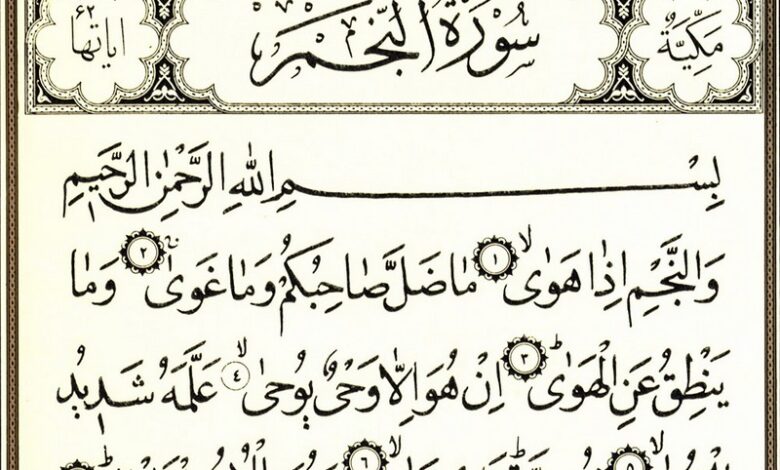 مَكِّيَّةٌ سُورَةُ النَّجْمِ ٦٢ اياتها
بِسْمِ اللهِ الرَّحْمٰنِ الرَّحٖيمِ
وَالنَّجْمِ اِذَا هَوٰىۙ ﴿١﴾ مَا ضَلَّ صَاحِبُكُمْ وَمَا غَوٰىۚ ﴿٢﴾ وَمَا
يَنْطِقُ عَنِ الْهَوٰىؕ ﴿٣﴾ اِنْ هُوَ اِلَّا وَحْىٌ يُوحٰىۙ ﴿٤﴾ عَلَّمَهُ شَدٖيدُ
﴿٥﴾ ﴿٦﴾